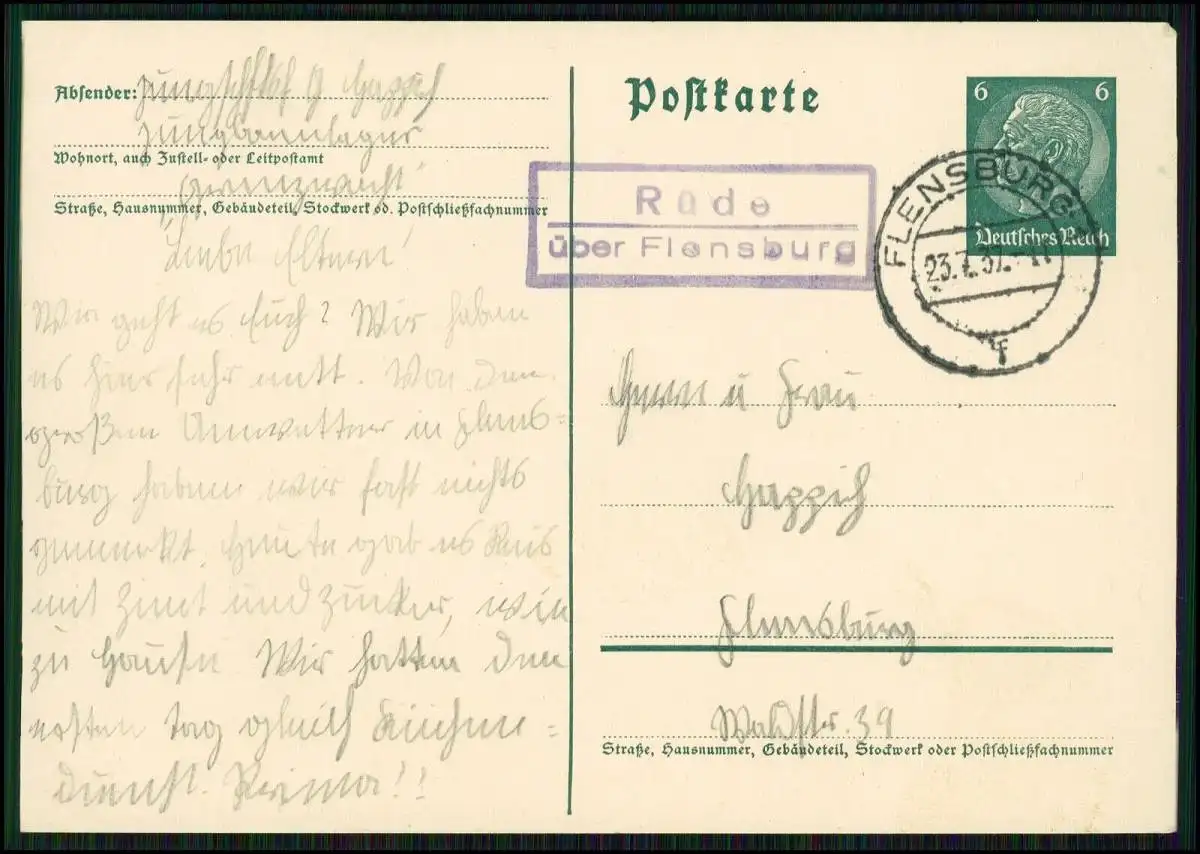 Absender: Jungschftsf G Happich
Jungbannlager
Wohnort, auch Zustell- oder Leitpostamt
„Grenzwacht“
Straße, Hausnummer, Gebäudeteil, Stockwerk od. Postschließfachnummer
Liebe Eltern!
Wie geht es Euch? Wir haben
es hier sehr nett. Von dem
großen Unwetter in Flens-
burg haben wir fast nichts
gemerkt. Heute gab es Reis
mit Zimt und Zucker, wie
zu Hause. Wir hatten den
ersten Tag gleich Küchen-
dienst. Prima!!
Postkarte
6 6
Deutsches Reich
Rüde
über Flensburg
FLENSBURG
23.7.37.
f
Herrn u Frau
Happich
Flensburg
Waldstr. 39
Straße, Hausnummer, Gebäudeteil, Stockwerk oder Postschließfachnummer